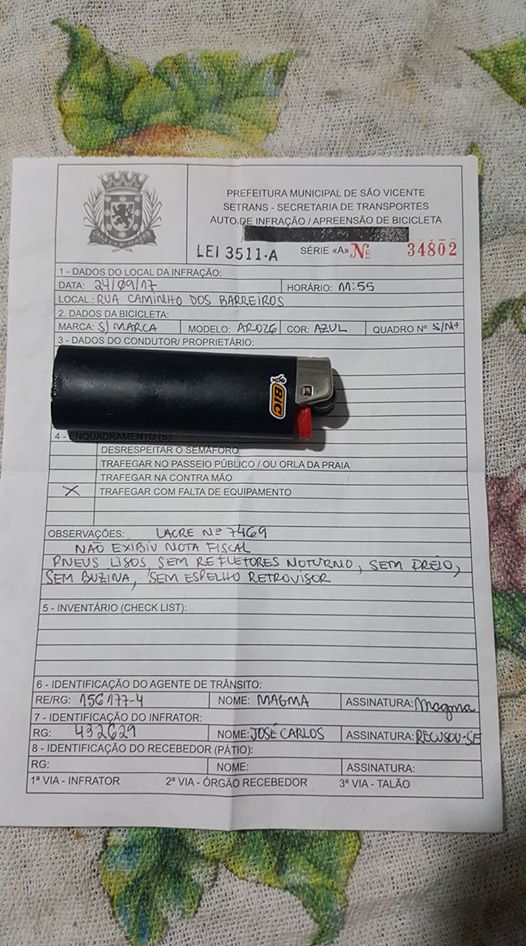 PREFEITURA MUNICIPAL DE SÃO VICENTE
SETRANS - SECRETARIA DE TRANSPORTES
AUTO DE INFRAÇÃO / APREENSÃO DE BICICLETA
LEI 3511-A SÉRIE «A» Nº 34802
1 - DADOS DO LOCAL DA INFRAÇÃO:
DATA: 24/09/17 HORÁRIO: 11:55
LOCAL: RUA CAMINHO DOS BARREIROS
2. DADOS DA BICICLETA:
MARCA: S/ MARCA MODELO: ARO26 COR: AZUL QUADRO Nº S/Nº
3 - DADOS DO CONDUTOR/ PROPRIETÁRIO:
BIC
4 - ENQUADRAMENTO (S):
DESRESPEITAR O SEMÁFORO
TRAFEGAR NO PASSEIO PÚBLICO / OU ORLA DA PRAIA
TRAFEGAR NA CONTRA MÃO
X TRAFEGAR COM FALTA DE EQUIPAMENTO
OBSERVAÇÕES: LACRE Nº 7469
NÃO EXIBIU NOTA FISCAL
PNEUS LISOS, SEM REFLETORES NOTURNO, SEM FREIO,
SEM BUZINA, SEM ESPELHO RETROVISOR
5 - INVENTÁRIO (CHECK LIST):
6 - IDENTIFICAÇÃO DO AGENTE DE TRÂNSITO:
RE/RG: 156177-4 NOME: MAGMA ASSINATURA: Magma
7 - IDENTIFICAÇÃO DO INFRATOR:
RG: 432629 NOME: JOSÉ CARLOS ASSINATURA: RECUSOU-SE
8 - IDENTIFICAÇÃO DO RECEBEDOR (PÁTIO):
RG: NOME: ASSINATURA:
1ª VIA - INFRATOR 2ª VIA - ÓRGÃO RECEBEDOR 3ª VIA - TALÃO